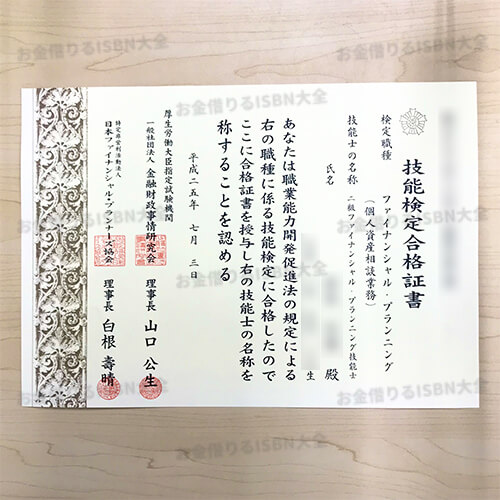 技能検定合格証書
検定職種
ファイナンシャル・プランニング
(個人資産相談業務)
技能士の名称
二級ファイナンシャル・プランニング技能士
氏名
殿
生
あなたは職業能力開発促進法の規定による
右の職種に係る技能検定に合格したので
ここに合格証書を授与し右の技能士の名称を
称することを認める
平成二五年 七月 三日
厚生労働大臣指定試験機関
一般社団法人 金融財政事情研究会 理事長 山口 公生
特定非営利活動法人
日本ファイナンシャル・プランナーズ協会 理事長 白根 壽晴
お金借りるISBN大全
お金借りるISBN大全
お金借りるISBN大全
お金借りるISBN大全
お金借りるISBN大全